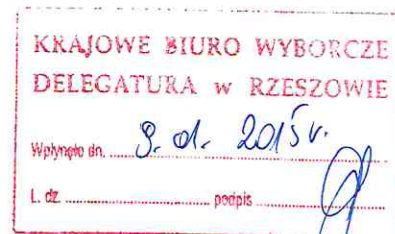 KRAJOWE BIURO WYBORCZE
DELEGATURA w RZESZOWIE
Wpłynęło dn. 01. 2015 r.
L. dz. podpis